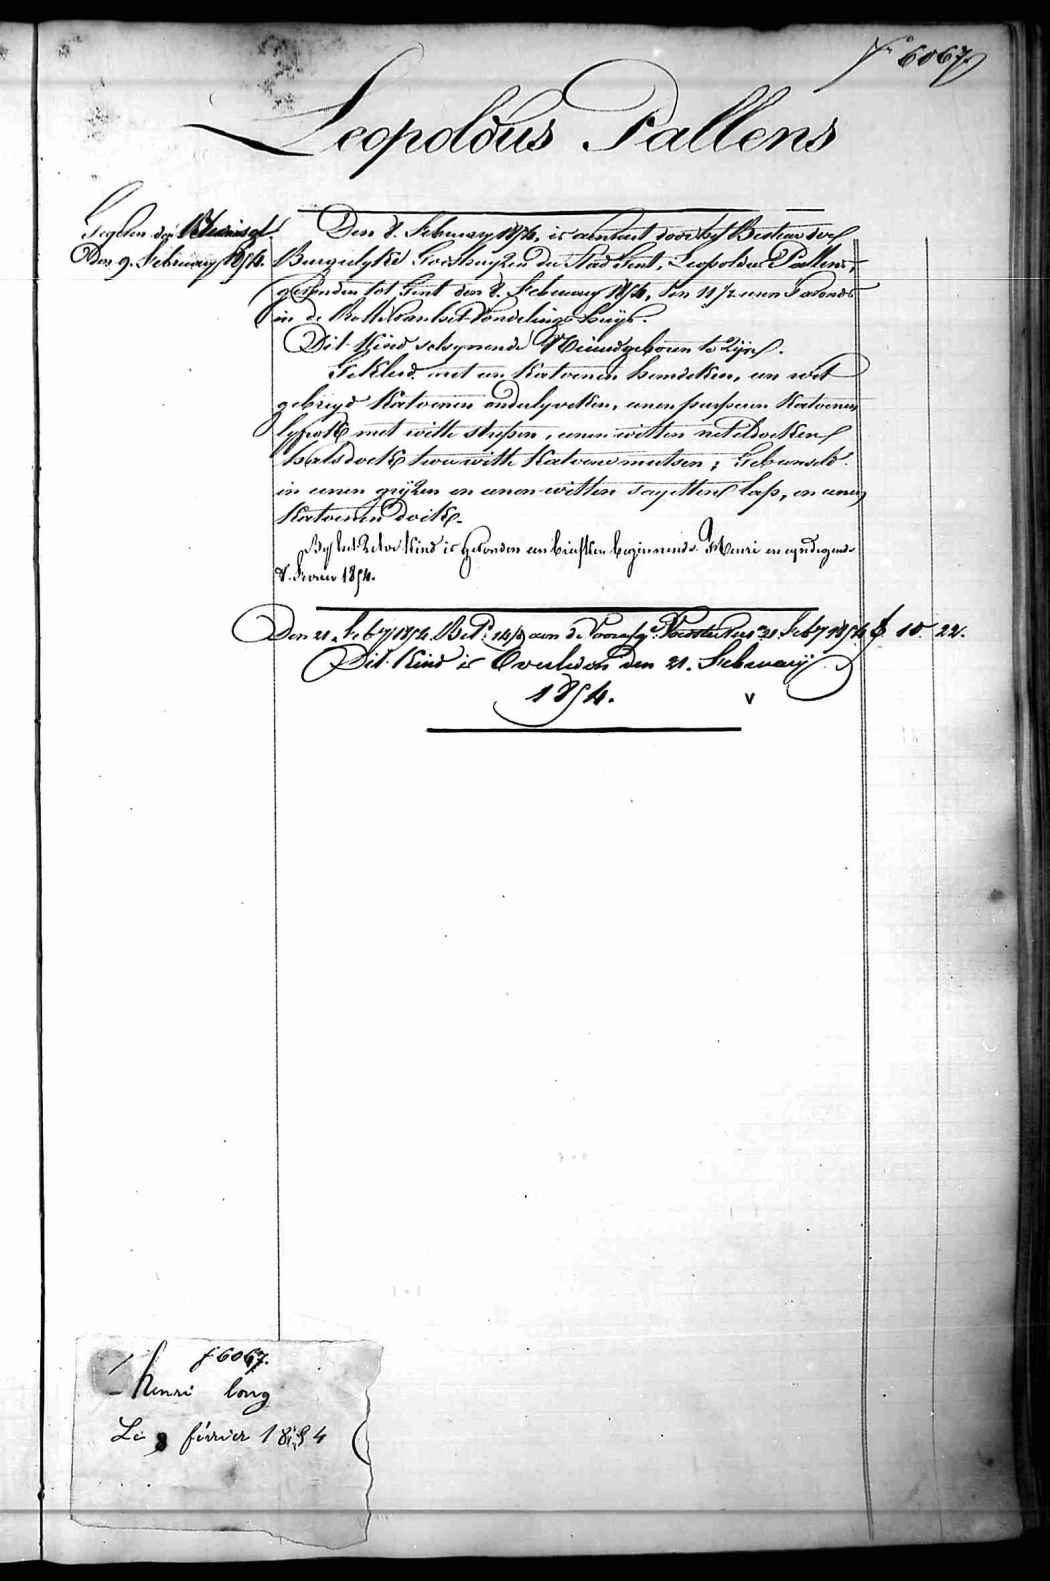 f° 6067
Leopoldus Pallens
Den 8. February 1854, is aenhert door het Bestier der
Burgerlyke Godshuyzen der Stad Gent, Leopoldus Pallens,
gevonden tot Gent den 8. February 1854, ten 11 1/2 uren s'avonds
in de Rolle van het Vondelings huys.
Dit Kind schynende Nieuwgeboren te zyn.
Gekleed met een Katoenen hemdeken, een wit
gebreyd Katoenen onderlyveken, eenen purperen Katoenen
lyfrok met witte strepen, eenen witten neteldoeken
halsdoek, twee witte Katoene mutsen; Gebunseld
in eenen gryzen en eenen witten sayetten lap, en eenen
Katoenen doek.
By het zelve Kind is gevonden een briefken beginnende Henri en eyndigende
8. Fevrier 1854.
Gegeven den
Den 9. February 1854.
Den 21. Feb'y 1854. Bet. aen de 21 Feb'y 1854 f 10 22.
Dit Kind is Overleden den 21. February
1854.
f 6067.
henri long
Le 8 février 1854